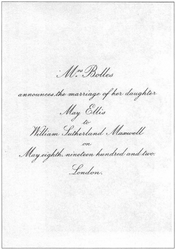 Mrs Bolles
announces the marriage of her daughter
May Ellis
to
William Sutherland Maxwell
on
May eighth, nineteen hundred and two
London.